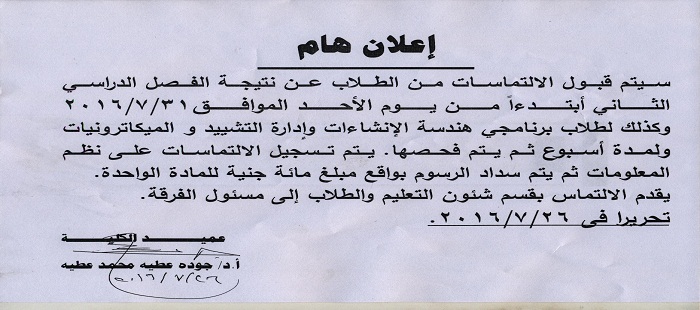 إعلان هام
سيتم قبول الالتماسات من الطلاب عن نتيجة الفصل الدراسي
الثاني أبتدءاً من يوم الأحد الموافق ٢٠١٦/٧/٣١
وكذلك لطلاب برنامجي هندسة الإنشاءات وإدارة التشييد و الميكاترونيات
ولمدة أسبوع ثم يتم فحصها. يتم تسجيل الالتماسات على نظم
المعلومات ثم يتم سداد الرسوم بواقع مبلغ مائة جنية للمادة الواحدة.
يقدم الالتماس بقسم شئون التعليم والطلاب إلى مسئول الفرقة.
تحريرا فى ٢٠١٦/٧/٢٦.
عميد الكلية
أ.د/ جوده عطيه محمد عطيه
٢٠١٦/٧/٢٦